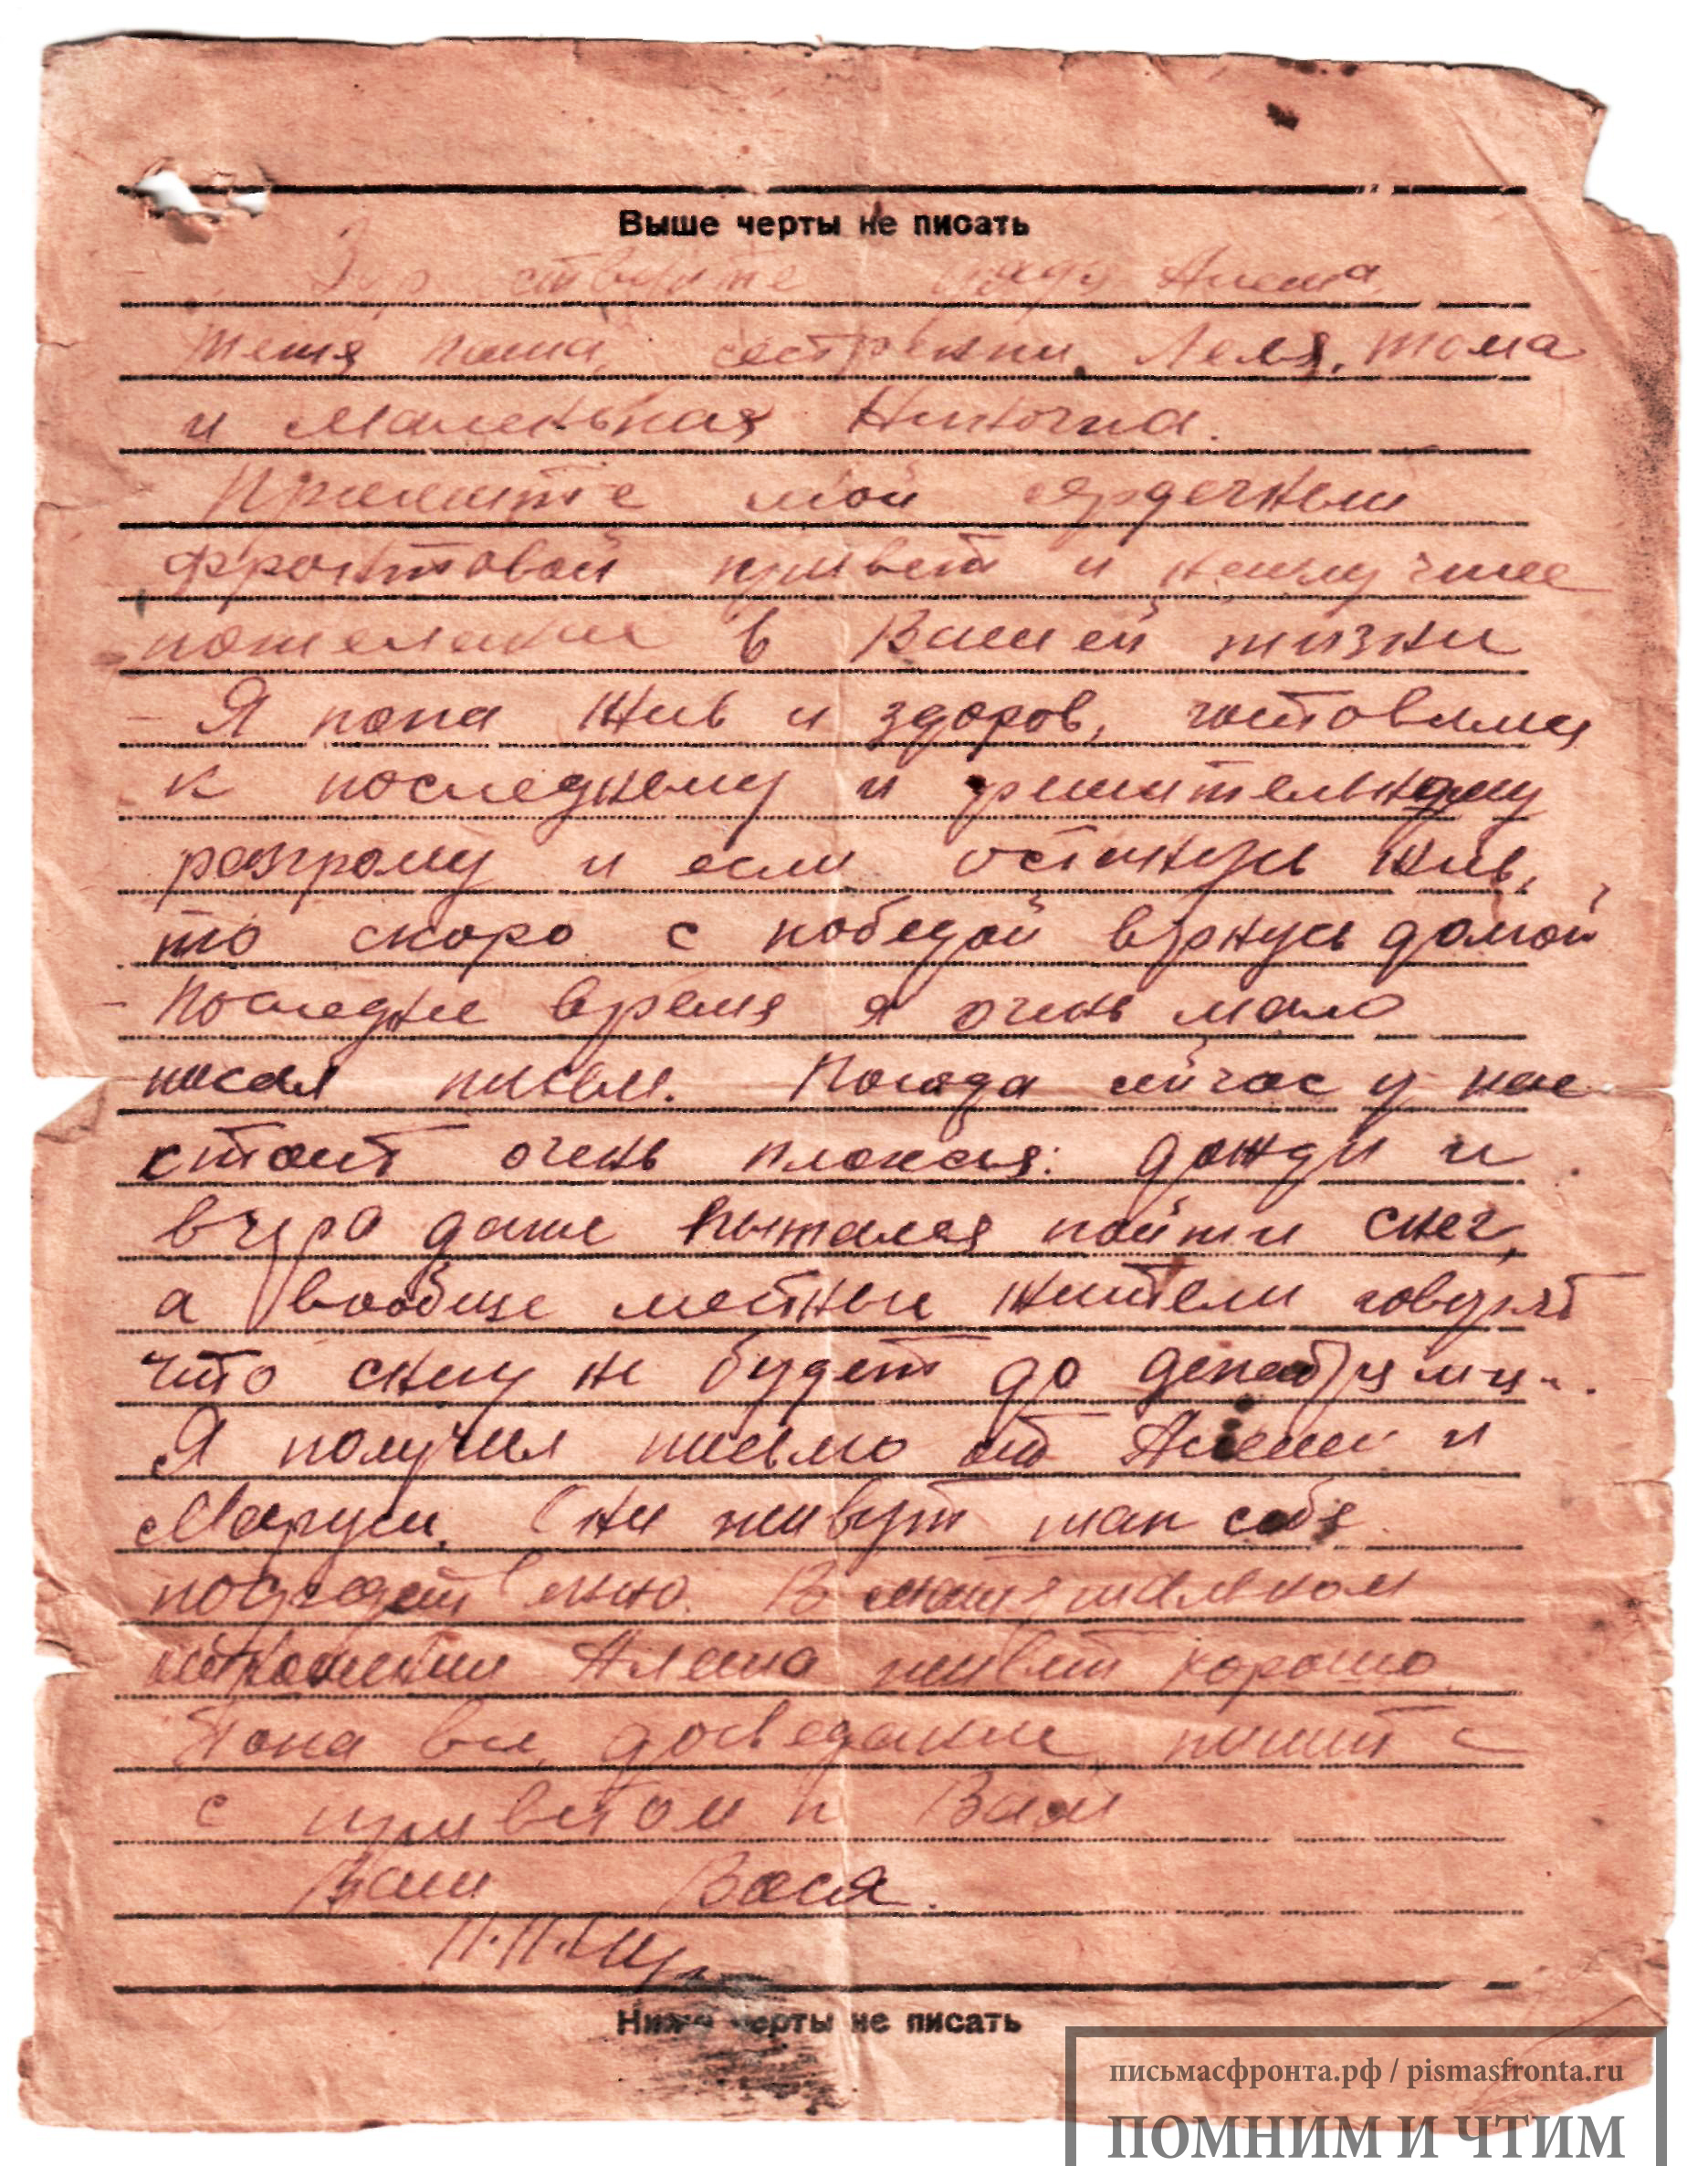 Выше черты не писать
Здравствуйте дядя Алеша,
тетя Паша, сестренки Леля, Тома
и маленькая Ниночка.
Примите мой сердечный
фронтовой привет и наилучшие
пожелание в Вашей жизни
- Я пока жив и здоров, готовлюсь
к последнему и решительному
разгрому и если останусь жив,
то скоро с победой вернусь домой
- Последнее время я очень мало
писал письма. Погода сейчас у нас
стоит очень плохая: дожди и
вчера даже пытался пойти снег,
а вообще местные жители говорят
что снегу не будет до декабря м-ца.
Я получил письмо от Алеши и
Маруси. Они живут так себе
посредственно. В материальном
отношении Алеша живет хорошо.
Пока все, досведание, пишите
с приветом к Вам
Ваш Вася.
Ниже черты не писать
письмасфронта.рф / pismasfronta.ru
ПОМНИМ И ЧТИМ